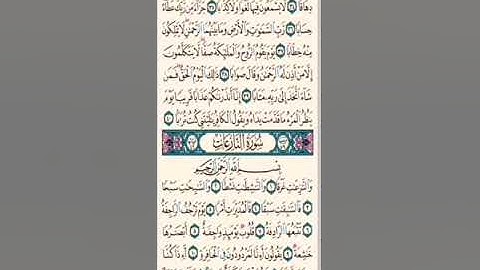 دِهَاقًا ٣٤ لَّا يَسْمَعُونَ فِيهَا لَغْوًا وَلَا كِذَّٰبًا ٣٥ جَزَآءً مِّن رَّبِّكَ عَطَآءً
حِسَابًا ٣٦ رَّبِّ ٱلسَّمَٰوَٰتِ وَٱلْأَرْضِ وَمَا بَيْنَهُمَا ٱلرَّحْمَٰنِ لَا يَمْلِكُونَ
مِنْهُ خِطَابًا ٣٧ يَوْمَ يَقُومُ ٱلرُّوحُ وَٱلْمَلَٰٓئِكَةُ صَفًّا لَّا يَتَكَلَّمُونَ
إِلَّا مَنْ أَذِنَ لَهُ ٱلرَّحْمَٰنُ وَقَالَ صَوَابًا ٣٨ ذَٰلِكَ ٱلْيَوْمُ ٱلْحَقُّ فَمَن
شَآءَ ٱتَّخَذَ إِلَىٰ رَبِّهِۦ مَـَٔابًا ٣٩ إِنَّآ أَنذَرْنَٰكُمْ عَذَابًا قَرِيبًا يَوْمَ
يَنظُرُ ٱلْمَرْءُ مَا قَدَّمَتْ يَدَاهُ وَيَقُولُ ٱلْكَافِرُ يَٰلَيْتَنِى كُنتُ تُرَٰبًۢا ٤٠
سُورَةُ ٱلنَّازِعَاتِ
بِسْمِ ٱللَّهِ ٱلرَّحْمَٰنِ ٱلرَّحِيمِ
وَٱلنَّٰزِعَٰتِ غَرْقًا ١ وَٱلنَّٰشِطَٰتِ نَشْطًا ٢ وَٱلسَّٰبِحَٰتِ سَبْحًا
٣ فَٱلسَّٰبِقَٰتِ سَبْقًا ٤ فَٱلْمُدَبِّرَٰتِ أَمْرًا ٥ يَوْمَ تَرْجُفُ ٱلرَّاجِفَةُ
٦ تَتْبَعُهَا ٱلرَّادِفَةُ ٧ قُلُوبٌ يَوْمَئِذٍ وَاجِفَةٌ ٨ أَبْصَٰرُهَا
خَٰشِعَةٌ ٩ يَقُولُونَ أَءِنَّا لَمَرْدُودُونَ فِى ٱلْحَافِرَةِ ١٠ أَءِذَا كُنَّا